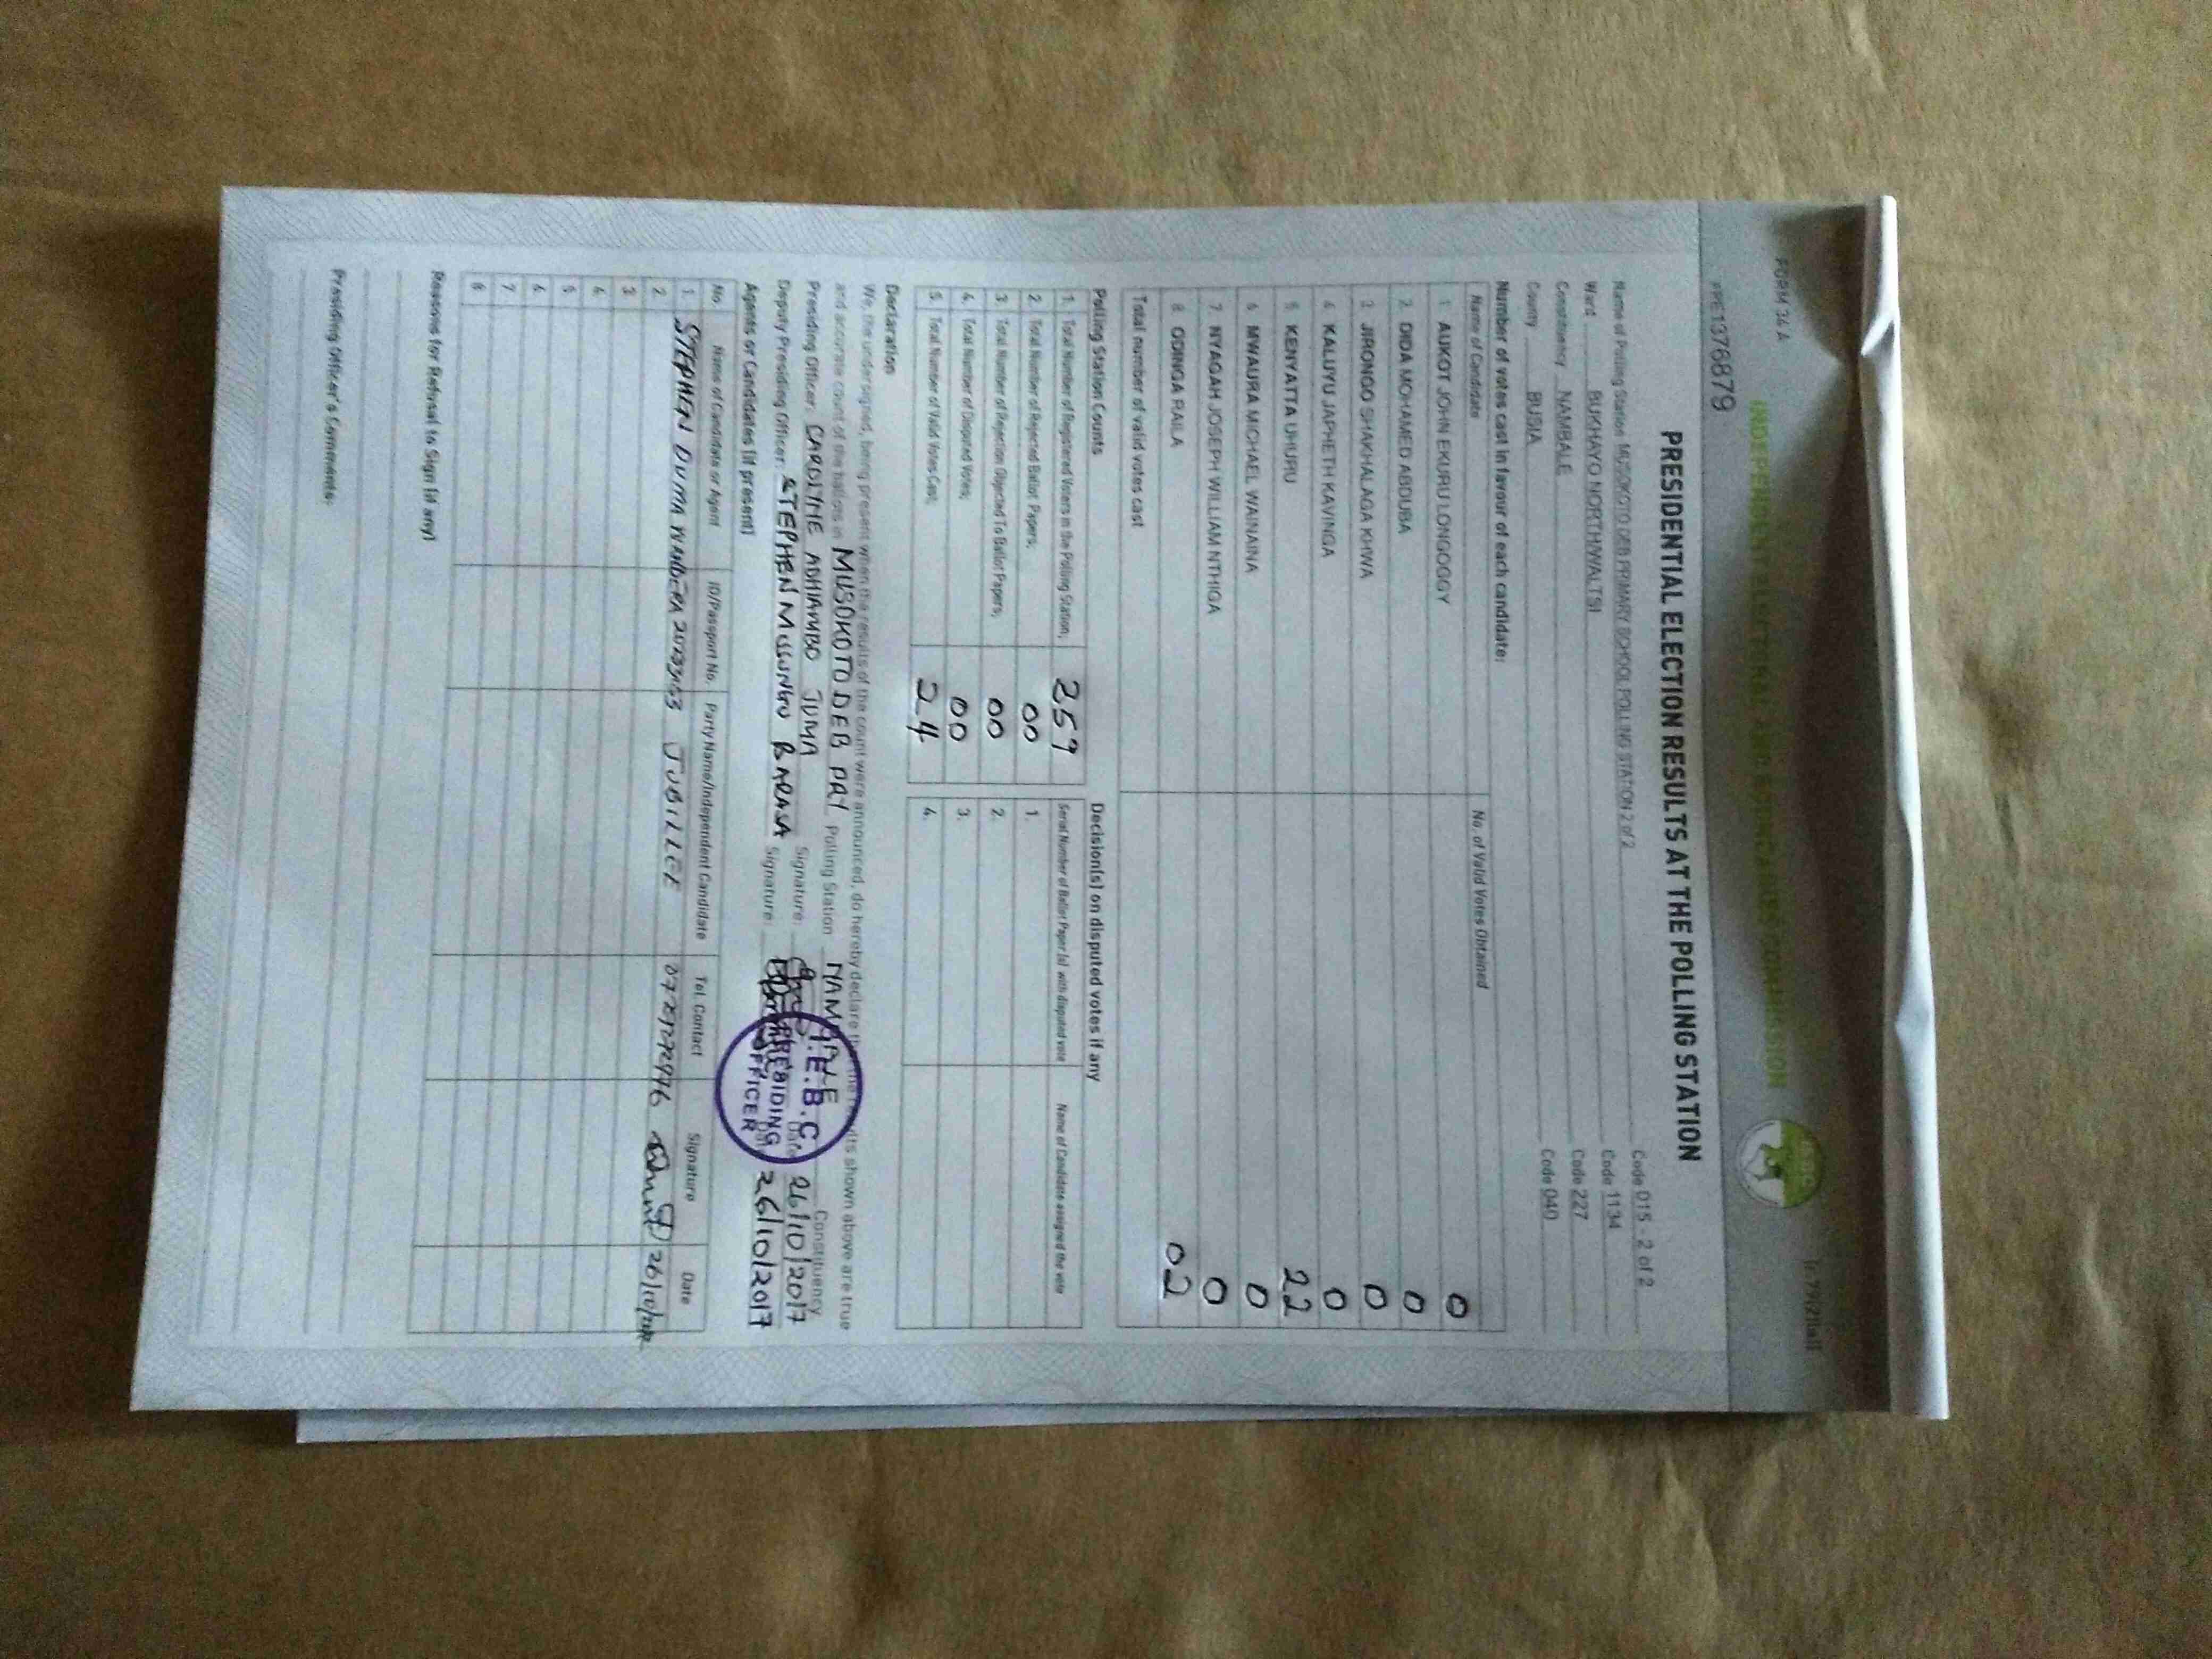 FORM 34 A
(r.79(2)(a))
INDEPENDENT ELECTORAL AND BOUNDARIES COMMISSION
PE1376879
PRESIDENTIAL ELECTION RESULTS AT THE POLLING STATION
Name of Polling Station MUSOKOTO DEB PRIMARY SCHOOL POLLING STATION 2 of 2 Code 015 - 2 of 2
Ward BUKHAYO NORTH/WALTSI Code 1134
Constituency NAMBALE Code 227
County BUSIA Code 040
Number of votes cast in favour of each candidate:
Name of Candidate No. of Valid Votes Obtained
1. AUKOT JOHN EKURU LONGOGGY 0
2. DIDA MOHAMED ABDUBA 0
3. JIRONGO SHAKHALAGA KHWA 0
4. KALUYU JAPHETH KAVINGA 0
5. KENYATTA UHURU 22
6. MWAURA MICHAEL WAINAINA 0
7. NYAGAH JOSEPH WILLIAM NTHIGA 0
8. ODINGA RAILA 02
Total number of valid votes cast
Polling Station Counts
1. Total Number of Registered Voters in the Polling Station; 359
2. Total Number of Rejected Ballot Papers; 00
3. Total Number of Rejection Objected To Ballot Papers; 00
4. Total Number of Disputed Votes; 00
5. Total Number of Valid Votes Cast; 24
Decision(s) on disputed votes if any
Serial Number of Ballot Paper (s) with disputed vote Name of Candidate assigned the vote
1.
2.
3.
4.
Declaration
We, the undersigned, being present when the results of the count were announced, do hereby declare that the results shown above are true
and accurate count of the ballots in MUSOKOTO DEB PRY Polling Station NAMBALE Constituency
Presiding Officer: CAROLYNE ADHIAMBO JUMA Signature: Date 26/10/2017
Deputy Presiding Officer: STEPHEN MUSUNGU BARASA Signature: Date 26/10/2017
I.E.B.C.
PRESIDING
OFFICER
Agents or Candidates (if present)
No. Name of Candidate or Agent ID/Passport No. Party Name/Independent Candidate Tel. Contact Signature Date
1. STEPHEN OUMA WANDERA JUBILEE
2.
3
4
5
6
7
8
Reasons for Refusal to Sign (if any)
Presiding Officer's Comments: